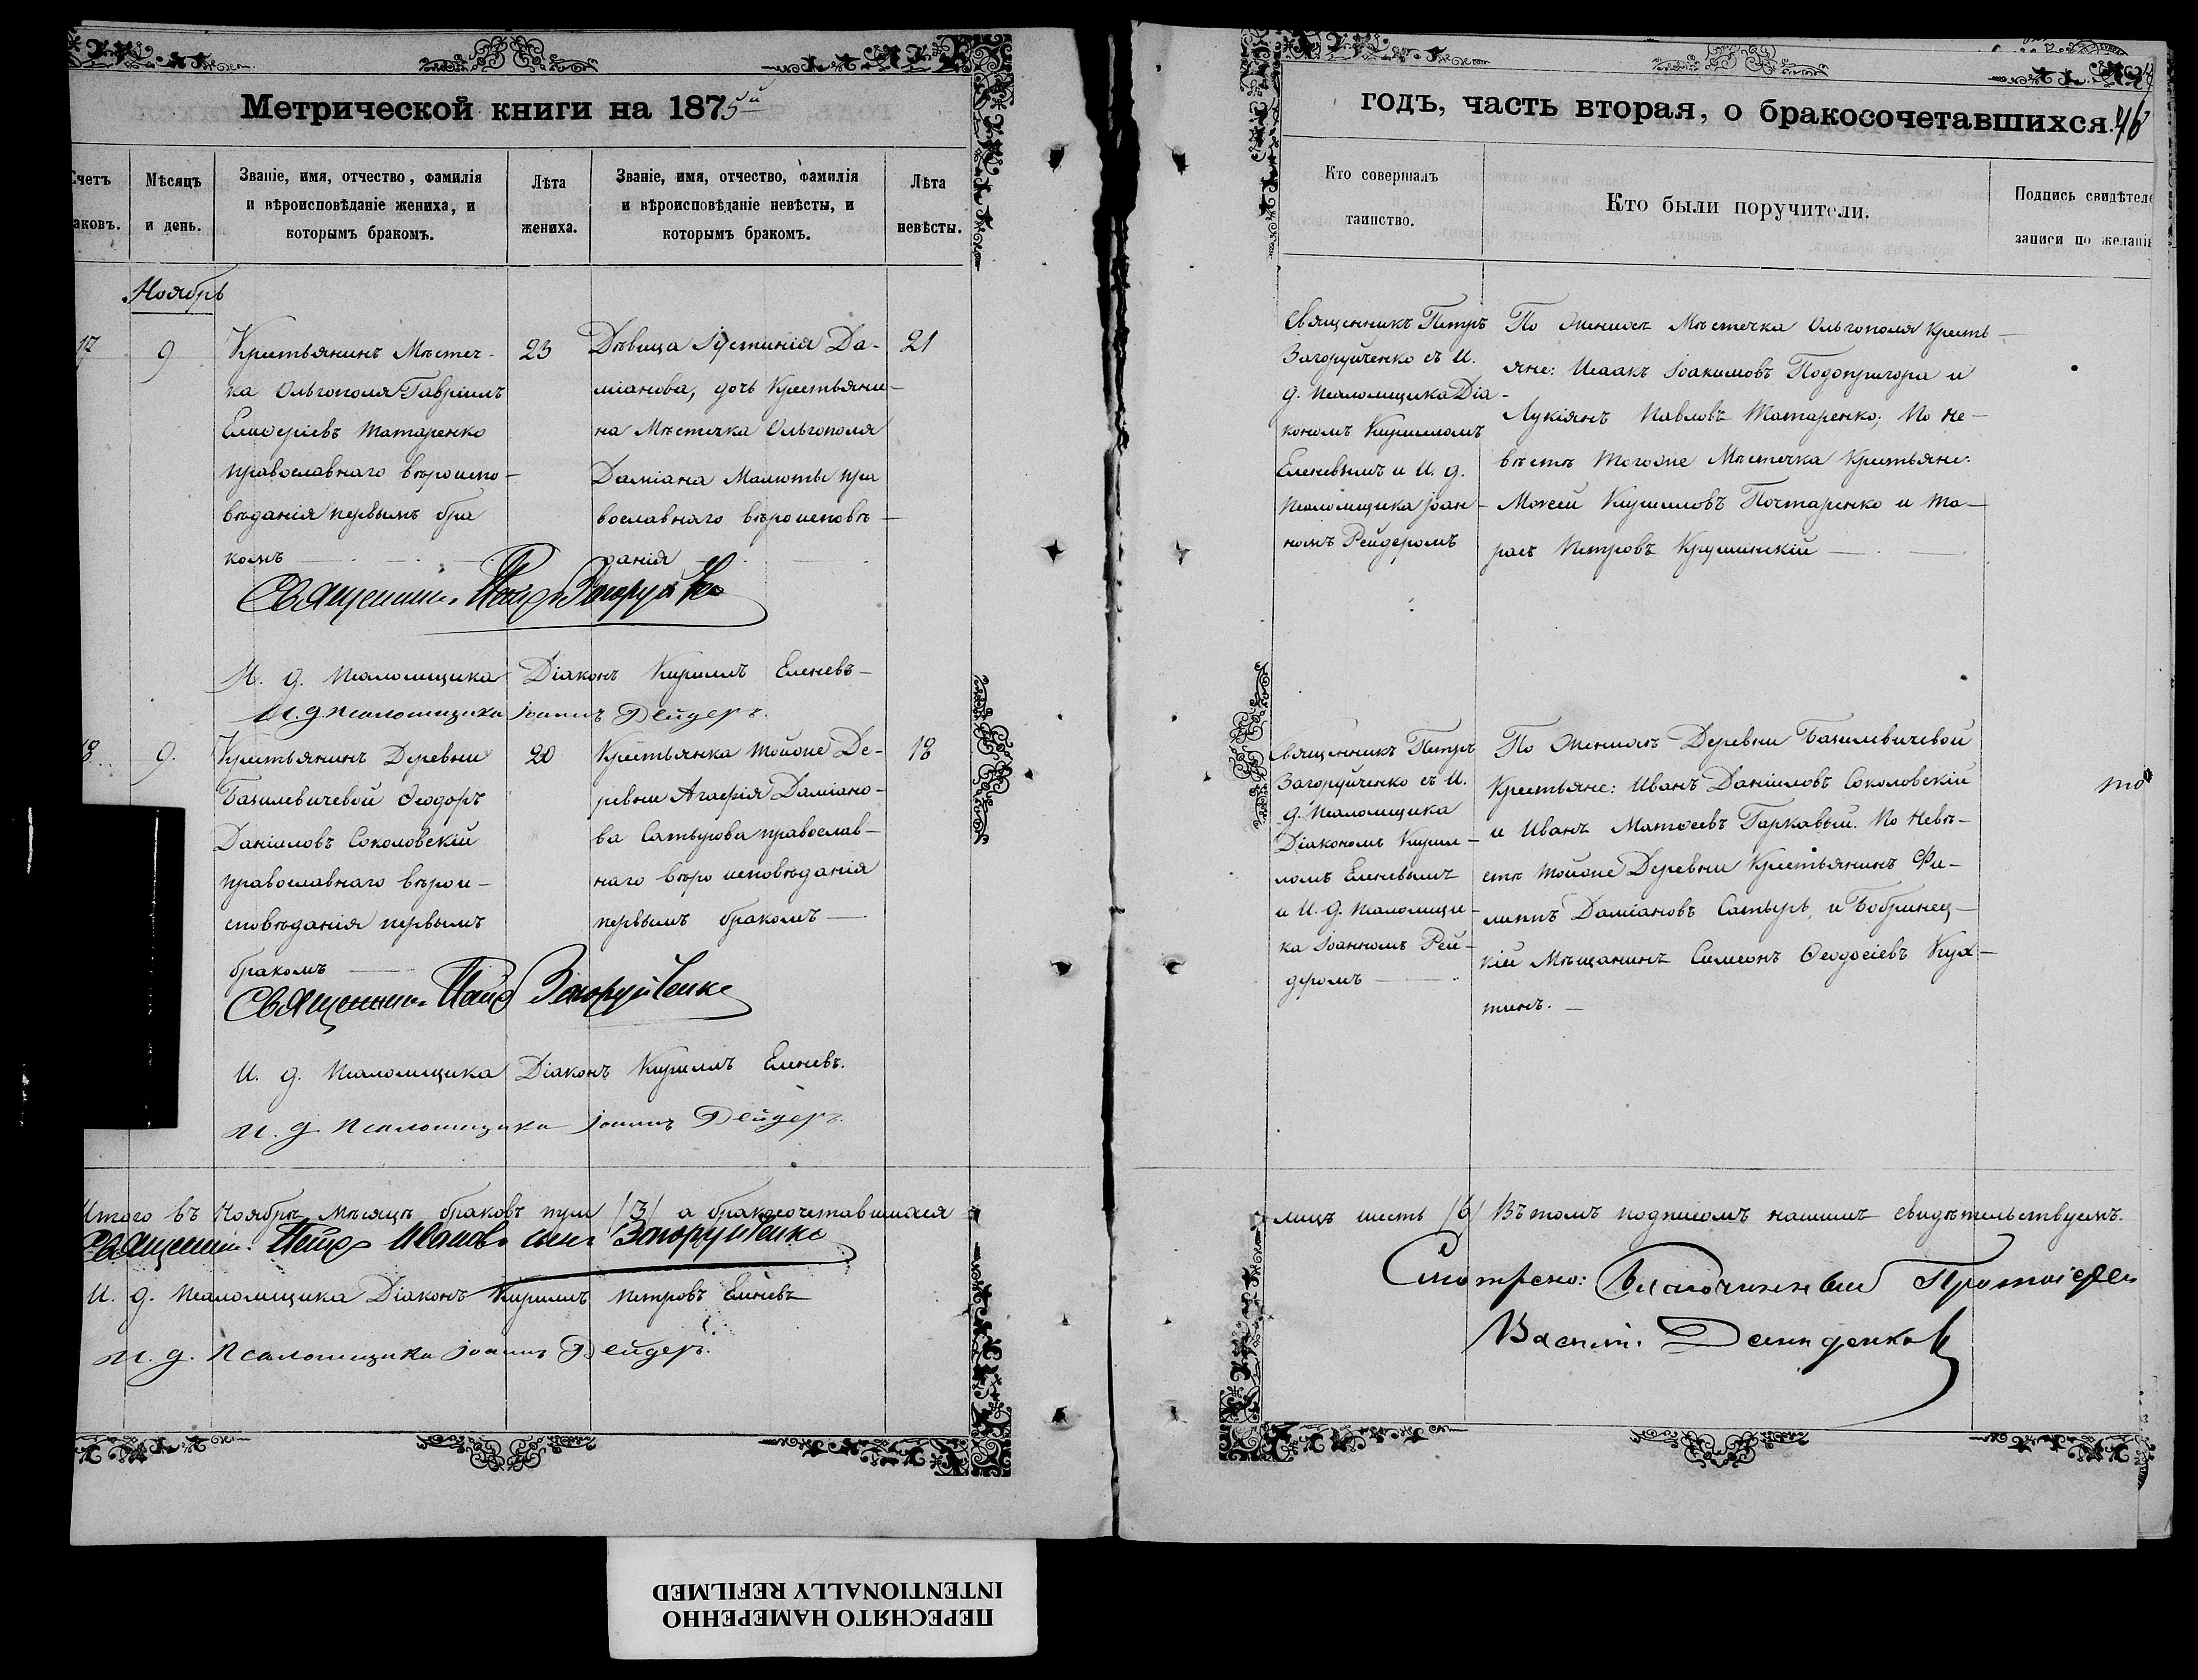 Метрической книги на 1875й
Счетъ
браковъ.
Мѣсяцъ
и день.
Званіе, имя, отчество, фамилія
и вѣроисповѣданіе жениха, и
которымъ бракомъ.
Лѣта
жениха.
Званіе, имя, отчество, фамилія
и вѣроисповѣданіе невѣсты, и
которымъ бракомъ.
Лѣта
невѣсты.
Ноябрь
17
9
Крестьянинъ Мѣстеч-
ка Ольгополя Гавріилъ
Елиѳеріевъ Татаренко
православнаго вѣроиспо-
вѣданія первымъ бра
комъ
23
Дѣвица Іустинія Да-
міанова, дочь Крестьяни-
на Мѣстечка Ольгополя
Даміана Малюты пра
вославнаго вѣроисповѣ-
данія
21
Священникъ Петръ Загоруйченко
И. д. Псаломщика Діаконъ Кириллъ Еленевъ
И. д. псаломщика Іоаннъ Рейдеръ.
18
9.
Крестьянинъ Деревни
Базилевичевой Ѳеодоръ
Даніиловъ Соколовскій
православнаго вѣрои-
сповѣданія первымъ
бракомъ
20
Крестьянка тойже Де-
ревни Агафія Даміано-
ва Сатырова православ-
наго вѣро исповѣданія
первымъ бракомъ
18
Священникъ Петръ Загоруйченко
И. д. Псаломщика Діаконъ Кириллъ Еленевъ.
И. д. Псаломщика Іоаннъ Рейдеръ.
Итого въ Ноябрѣ мѣсяцѣ браковъ три /3/ а бракосочетавшихся
Священникъ Петръ Ивановъ сынъ Загоруйченко
И. д. Псаломщика Діаконъ Кириллъ Петровъ Еленевъ
И. д. Псаломщика Іоаннъ Рейдеръ.
годъ, часть вторая, о бракосочетавшихся. 46
Кто совершалъ
таинство.
Кто были поручители.
Подпись свидѣтеле
записи по желані
Священникъ Петръ
Загоруйченко съ И.
д. Псаломщика Діа-
кономъ Кирилломъ
Еленевымъ и И. д.
Псаломщика Іоан-
номъ Рейдеромъ
По Женихѣ Мѣстечка Ольгополя Кресть-
яне: Исаакъ Іоакимовъ Подопригора и
Лукіянъ Павловъ Татаренко; По Не-
вѣстѣ тогоже Мѣстечка Крестьяне:
Моисей Кирилловъ Почтаренко и Та-
расъ Петровъ Крушинскій
Священникъ Петръ
Загоруйченко съ И.
д. Псаломщика
Діакономъ Кирил-
ломъ Еленевымъ
и И. д. Псаломщи-
ка Іоанномъ Рей-
деромъ
По Женихѣ Деревни Базилевичевой
Крестьяне: Иванъ Даніиловъ Соколовскій
и Иванъ Матѳеевъ Гаркавый. По Невѣ-
стѣ тойже Деревни Крестьянинъ Фи-
липпъ Даміановъ Сатыръ, и Бобринец-
кій Мѣщанинъ Симеонъ Ѳеодосіевъ Кух-
тинъ.
лицъ шесть /6/ Въ томъ подписомъ нашимъ свидѣтельствуемъ.
Смотрено: Благочинный Протоіерей
Демиденковъ
ПЕРЕСНЯТО НАМЕРЕННО
INTENTIONALLY REFILMED